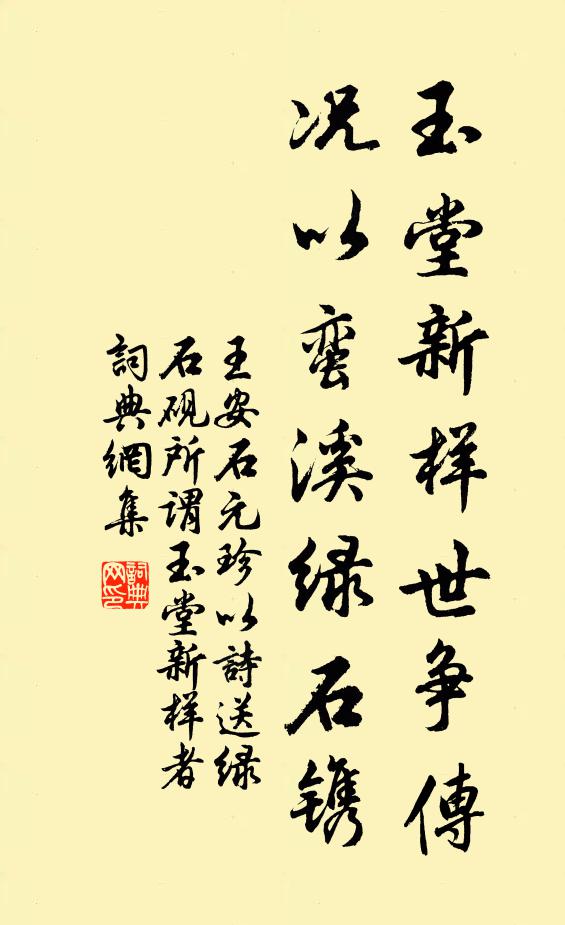 玉堂新样世争傳
况以蛮溪绿石镌
王安石元珍以詩送绿
石砚所谓玉堂新样者
詞典網集
詞典网印